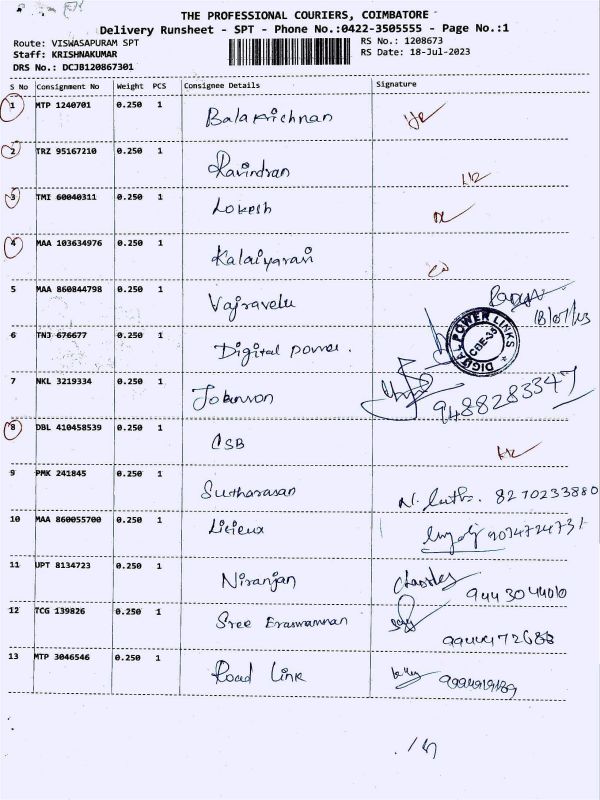 THE PROFESSIONAL COURIERS, COIMBATORE
Delivery Runsheet - SPT - Phone No.:0422-3505555 - Page No.:1
Route: VISWASAPURAM SPT
Staff: KRISHNAKUMAR
DRS No.: DCJB120867301
RS No.: 1208673
RS Date: 18-Jul-2023
S No Consignment No Weight PCS Consignee Details Signature
1 MTP 1240701 0.250 1 Balakrichnan
2 TRZ 95167210 0.250 1 Ravindran
3 TMI 60040311 0.250 1 Lokesh
4 MAA 103634976 0.250 1 Kalaiyarani
5 MAA 860844798 0.250 1 Vajravelu
18/07/23
6 TNJ 676677 0.250 1 Digital power.
DIGITAL POWER LINKS
CBE-35
7 NKL 3219334 0.250 1 Johnson 9488283347
8 DBL 410458539 0.250 1 CSB
9 PMK 241845 0.250 1 Sutharasan 8270233880
10 MAA 860055700 0.250 1 Licieux 9074724731
11 UPT 8134723 0.250 1 Niranjan Charles 9443044010
12 TCG 139826 0.250 1 Sree Eraswamnan 9944172688
13 MTP 3046546 0.250 1 Road Link 9994919189